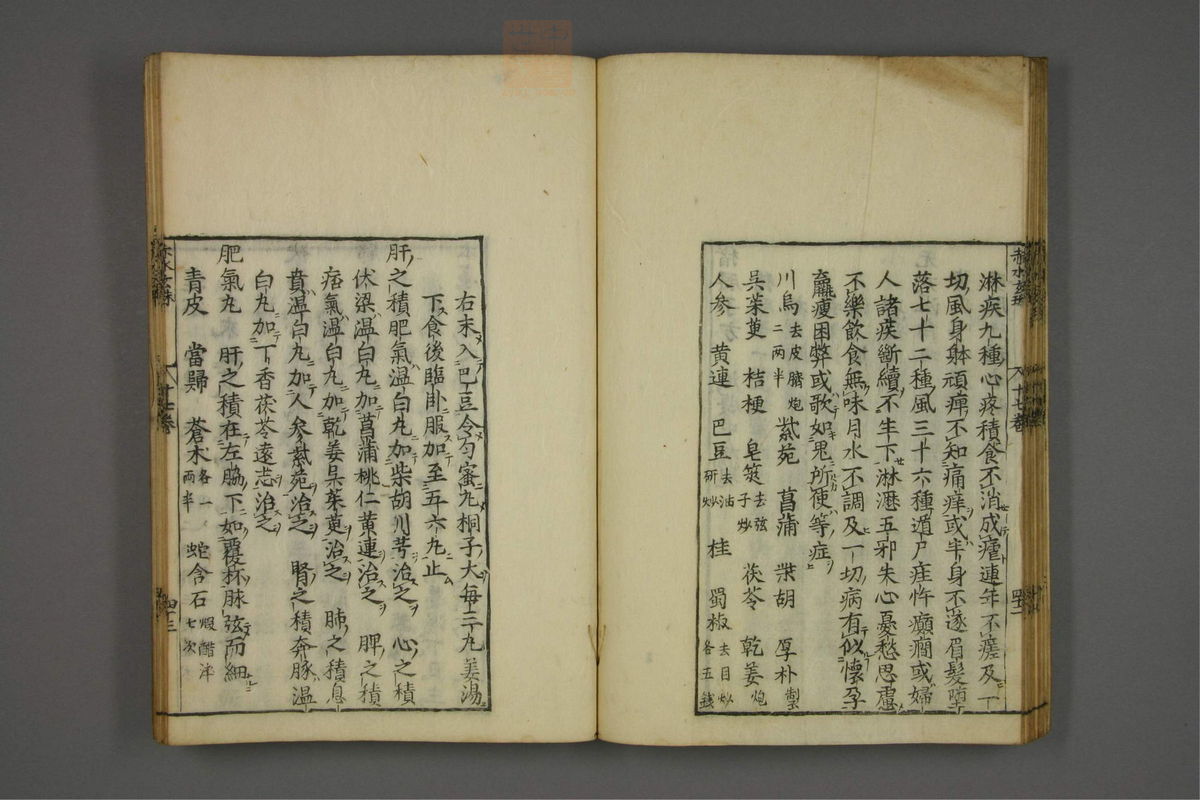 淋疾九種心疼積食不消成瘧連年不瘥及一
切風身躰頑痺不知痛痒或半身不遂眉髮墮
落七十二種風三十六種遁尸疰忤癲癇或婦
人諸疾斷續不生下淋瀝五邪失心憂愁思慮
不樂飲食無味月水不調及一切病有似懷孕
羸瘦困弊或歌如鬼所使等症
川烏去皮臍炮二兩半 紫苑 菖蒲 柴胡 厚朴製
吳茱萸 桔梗 皂莢去弦子炒 茯苓 乾姜炮
人參 黃連 巴豆去油研炒 桂 蜀椒去目炒各五錢
十七卷
右末入巴豆令勻蜜丸桐子大每三丸姜湯
下食後臨卧服加至五六丸止
肝之積肥氣溫白丸加柴胡川芎治之 心之積
伏梁溫白丸加菖蒲桃仁黃連治之 脾之積
痞氣溫白丸加乾姜吳茱萸治之 肺之積息
賁溫白丸加人參紫苑治之 腎之積奔豚溫
白丸加丁香茯苓遠志治之
肥氣丸 肝之積在左脇下如覆杯脉弦而細
青皮 當歸 蒼术各一兩半 蛇含石煅醋淬七次
十七卷
四十三